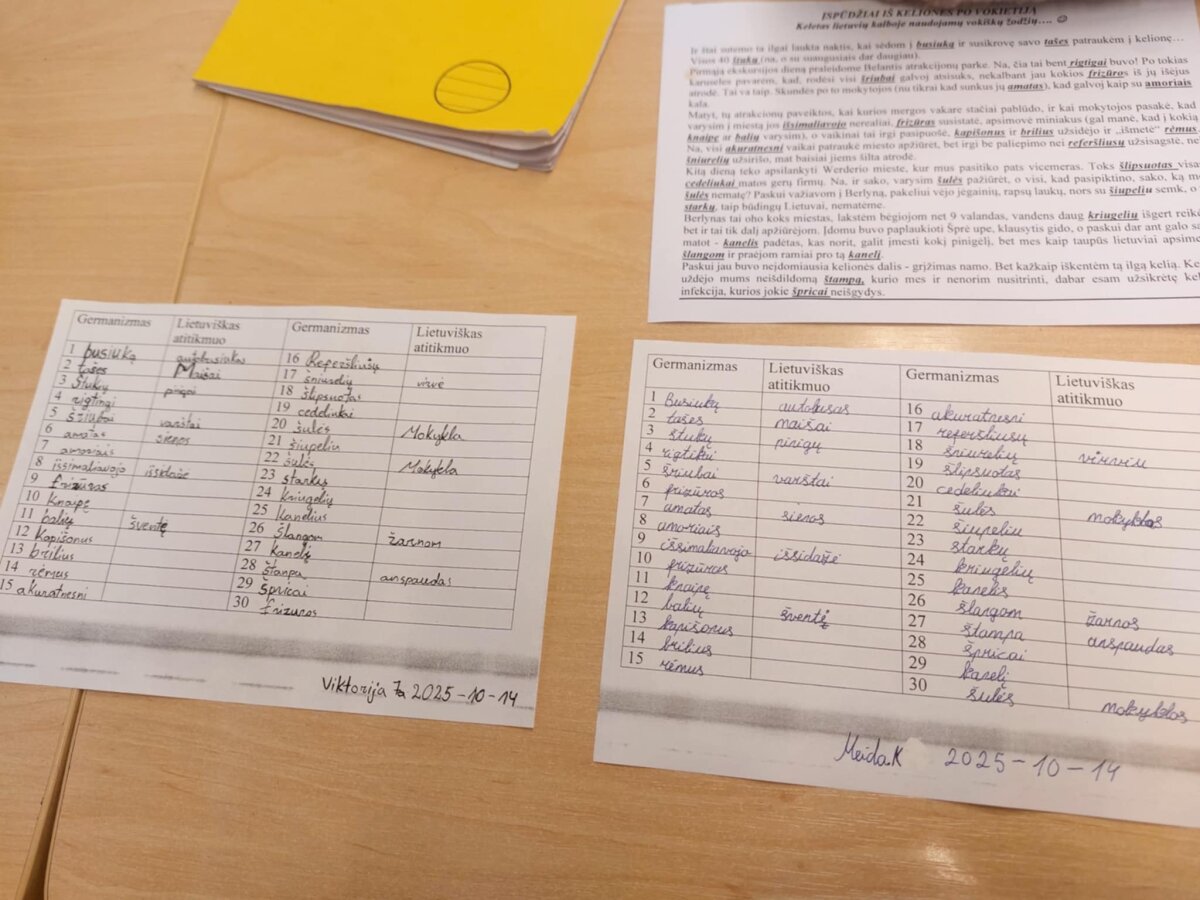 ĮSPŪDŽIAI IŠ KELIONĖS PO VOKIETIJĄ
Keletas lietuvių kalboje naudojamų vokiškų žodžių…. ☺
Ir štai sutemo ta ilgai laukta naktis, kai sėdom į busiuką ir susikrovę savo tašes patraukėm į kelionę…
Visos 40 štukų (na, o su suaugusiais dar daugiau).
Pirmąją ekskursijos dieną praleidome Belantis atrakcionų parke. Na, čia tai bent rigtigai buvo! Po tokias
karuseles pavarėm, kad, rodėsi visi šriubai galvoj atsisuks, nekalbant jau kokios frizūros iš jų išėjus
atrodė. Tai va taip. Skundės po to mokytojos (nu tikrai kad sunkus jų amatas), kad galvoj kaip su amoriais
kala.
Matyt, tų atrakcionų paveiktos, kai kurios mergos vakare stačiai pablūdo, ir kai mokytojos pasakė, kad
varysim į miestą jos išsimaliavojo nerealiai, frizūras susistatė, apsimovė miniakus (gal manė, kad į kokią
knaipę ar balių varysim), o vaikinai tai irgi pasipuošė, kapišonus ir brilius užsidėjo ir „išmetė“ rėmus
Na, visi akuratnesni vaikai patraukė miesto apžiūrėt, bet irgi be paliepimo nei referšliusų užsisagstė, ne
šniurelių užsirišo, mat baisiai jiems šilta atrodė.
Kitą dieną teko apsilankyti Werderio mieste, kur mus pasitiko pats vicemeras. Toks šlipsuotas visa
cedeliukai matos gerų firmų. Na, ir sako, varysim šulės pažiūrėt, o visi, kad pasipiktino, sako, ką me
šulės nematę? Paskui važiavom į Berlyną, pakeliui vėjo jėgainių, rapsų laukų, nors su šiupeliu semk, o
starkų, taip būdingų Lietuvai, nematėme.
Berlynas tai oho koks miestas, lakstėm bėgiojom net 9 valandas, vandens daug kriugelių išgert reik
bet ir tai tik dalį apžiūrėjom. Įdomu buvo paplaukioti Šprė upe, klausytis gido, o paskui dar ant galo sa
matot - kanelis padėtas, kas norit, galit įmesti kokį pinigėlį, bet mes kaip taupūs lietuviai apsime
šlangom ir praėjom ramiai pro tą kanelį.
Paskui jau buvo neįdomiausia kelionės dalis - grįžimas namo. Bet kažkaip iškentėm tą ilgą kelią. Ke
uždėjo mums neišdildomą štampą, kurio mes ir nenorim nusitrinti, dabar esam užsikrėtę kel
infekcija, kurios jokie špricai neišgydys.
Germanizmas Lietuviškas atitikmuo Germanizmas Lietuviškas atitikmuo
1 busiuką autobusiukas 16 Referšliusų
2 tašes Maišai 17 šniurelių virvė
3 Štukų pinigai 18 šlipsuotas
4 rigtingi 19 cedelinkai
5 Šriubai varštai 20 šulės Mokykla
6 amatas sienos 21 šiupeliu
7 amoriais 22 šulės Mokykla
8 išsimaliavojo išsidažė 23 starkų
9 frizūras 24 kriugelių
10 Knaipę 25 kanelius
11 balių šventę 26 Šlangom žarnom
12 Kapišonus 27 Kanelį
13 brilius 28 štanpa anspaudas
14 rėmus 29 Špricai
15 akuratnesni 30 frizuros
Viktorija 7a 2025-10-14
Germanizmas Lietuviškas atitikmuo Germanizmas Lietuviškas atitikmuo
1 Busiuką autobusas 16 akuratnesni
2 tašes maišai 17 referšliusų
3 štukų pinigų 18 šniurelių virvių
4 rigtikii 19 šlipsuotas
5 šriubai varštai 20 cedeliukai
6 frizūros 21 šulės mokyklos
7 amatas sienos 22 šiupeliu
8 amoriais 23 starkų
9 išsimaliavojo išsidažė 24 kriugelių
10 frizūras 25 kanelis
11 knaipę 26 šlangom žarnos
12 balių šventę 27 štampa anspaudas
13 kapišonus 28 špricai
14 brilius 29 kanelį
15 rėmus 30 šulės mokyklos
Meida.K 2025-10-14